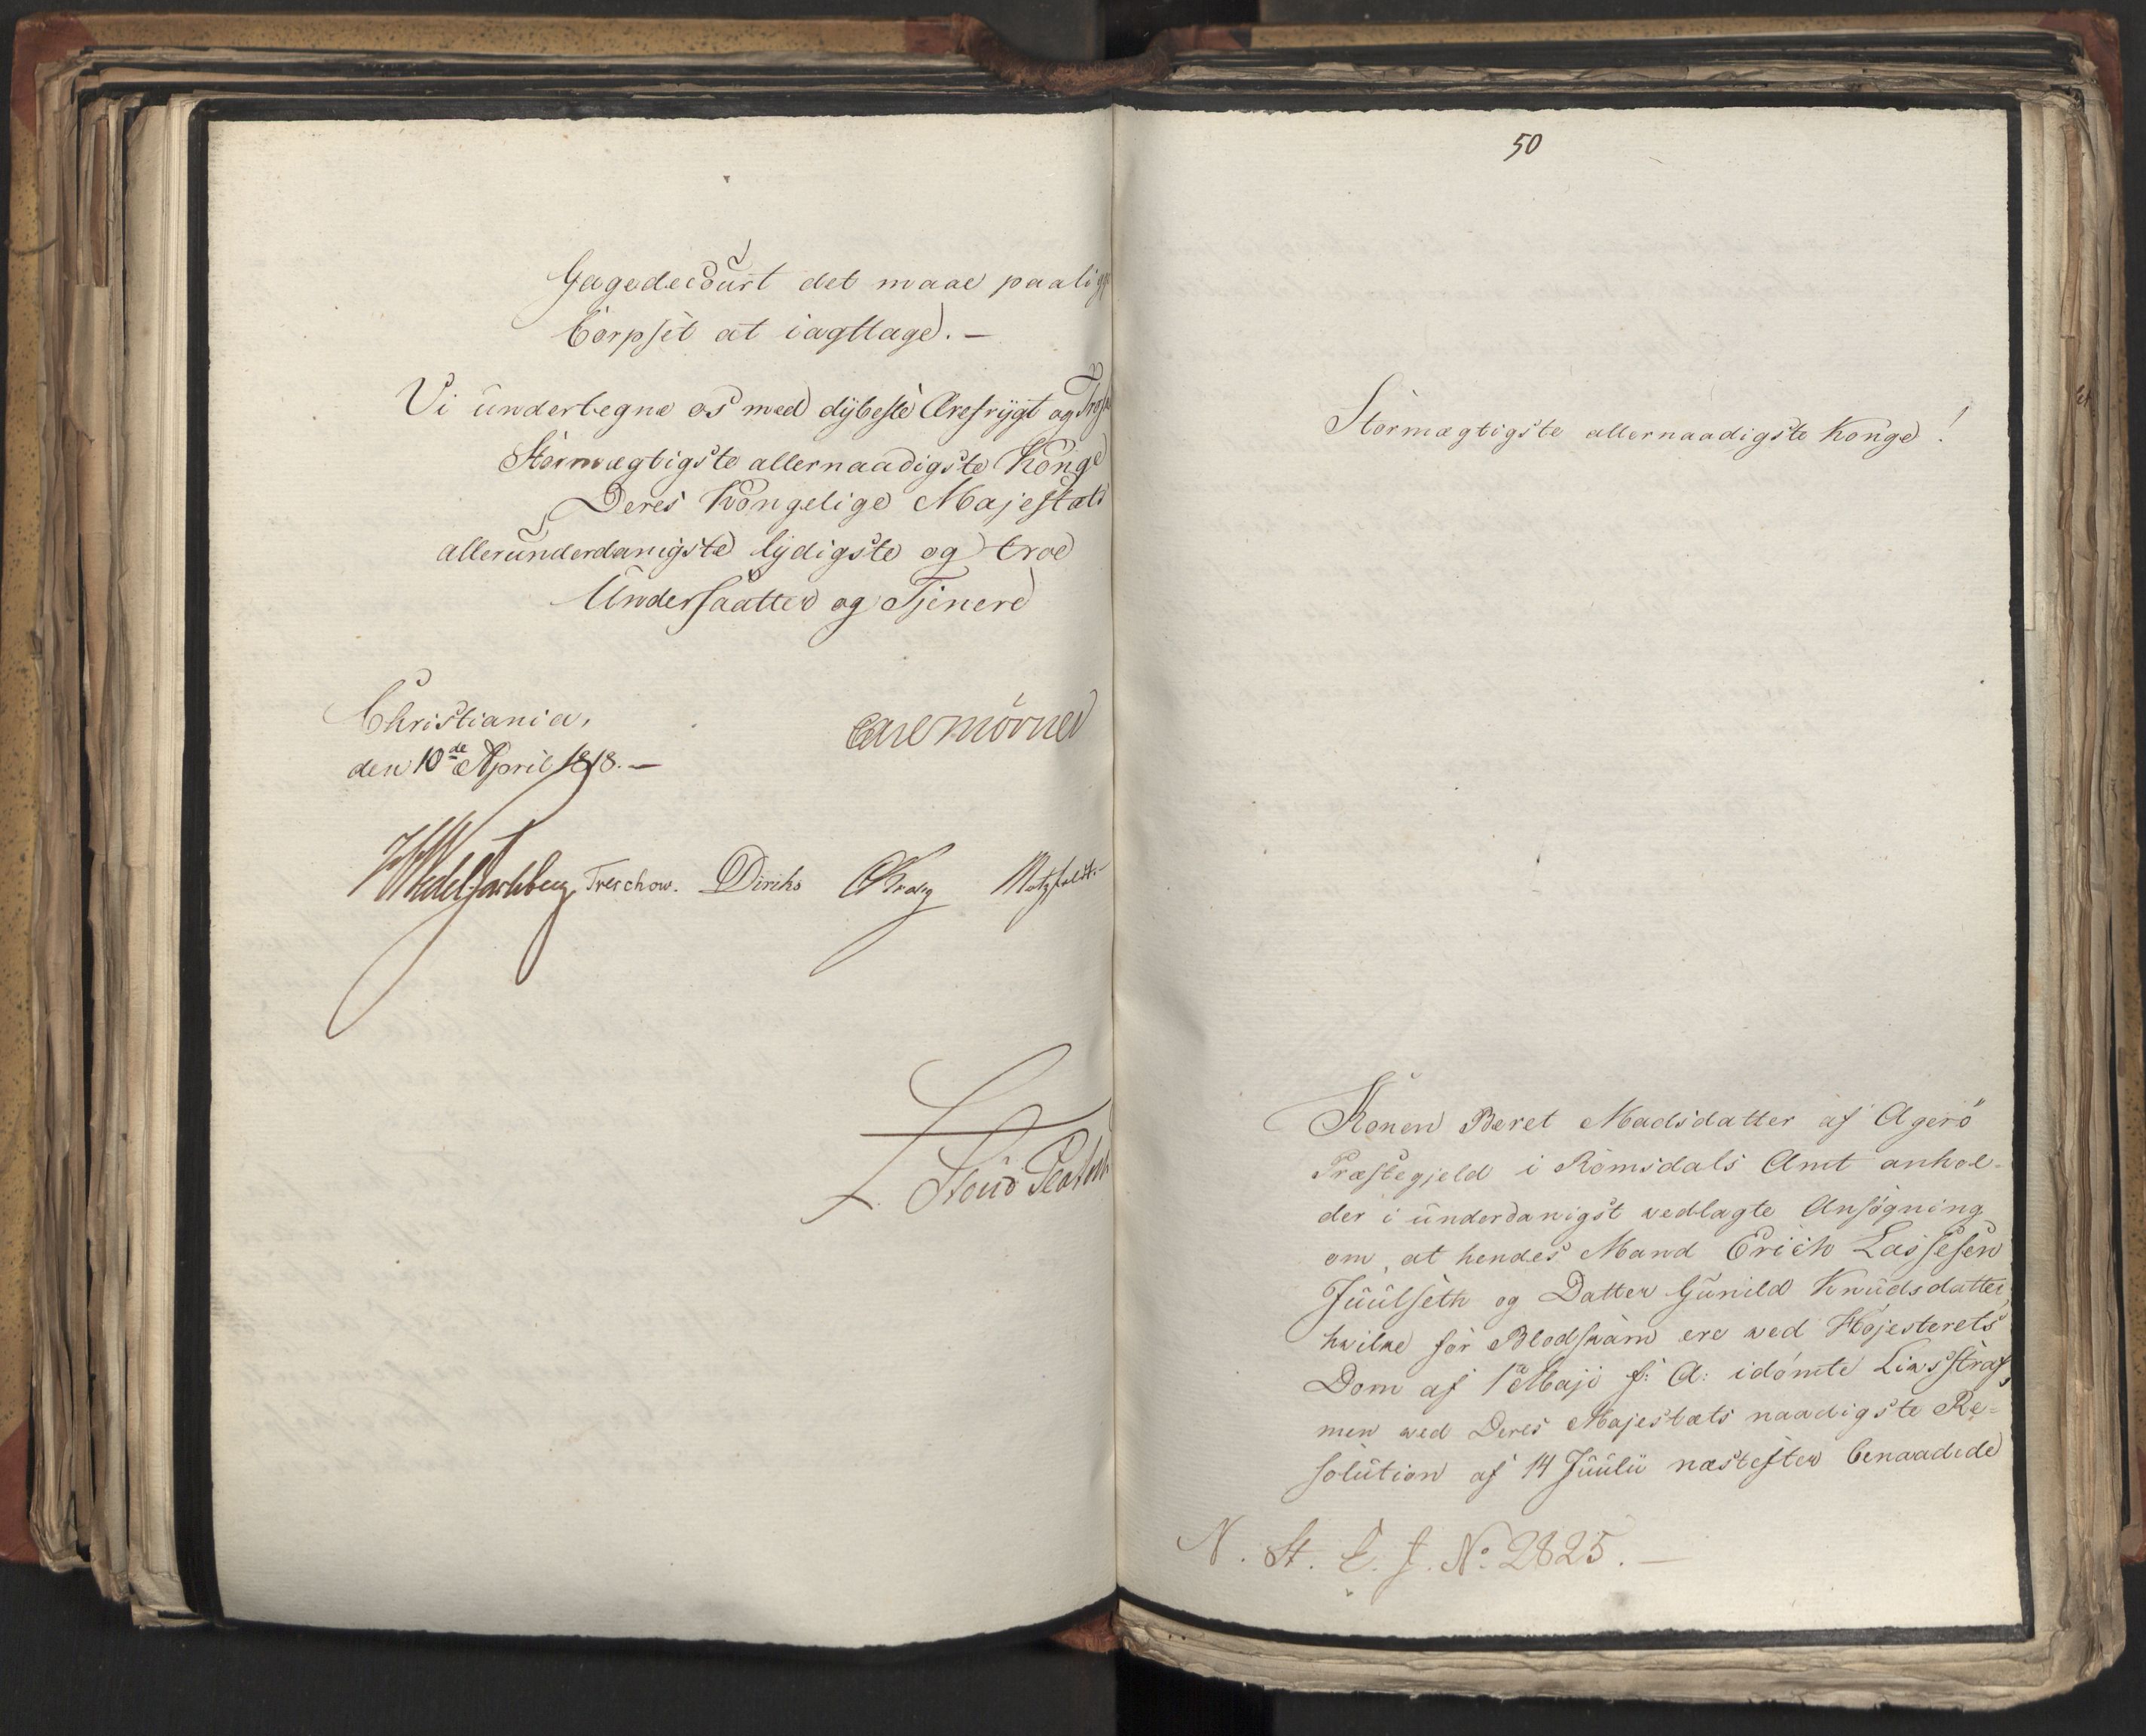 Gagedecourt det maae paaligge
Corpset at iagttage. —
Vi undertegne os med dybeste Ærefrygt og Troskab
Stormægtigste allernaadigste Konge
Deres Kongelige Majestæts
allerunderdanigste lydigste og troe
Undersaatter og Tjenere
Christiania,
den 10de April 1818. —
Carl Mörner
Wedel Jarlsberg Treschow. Diriks Krag Motzfeldt.
50
Stormægtigste allernaadigste Konge!
Konen Beret Madsdatter af Agerö
Præstegjeld i Romsdals Amt anhol-
der i underdanigst vedlagte Ansøgning
om, at hendes Mand Erich Lassesen
Juulseth og Datter Gunild Knudsdatter,
hvilke for Blodskam ere ved Højesterets
Dom af 1a Maji f: A: idømte Livsstraf,
men ved Deres Majestæts naadigste Re-
solution af 14 Juulii næstefter benaadede
N. St. E. J. No: 2825. —